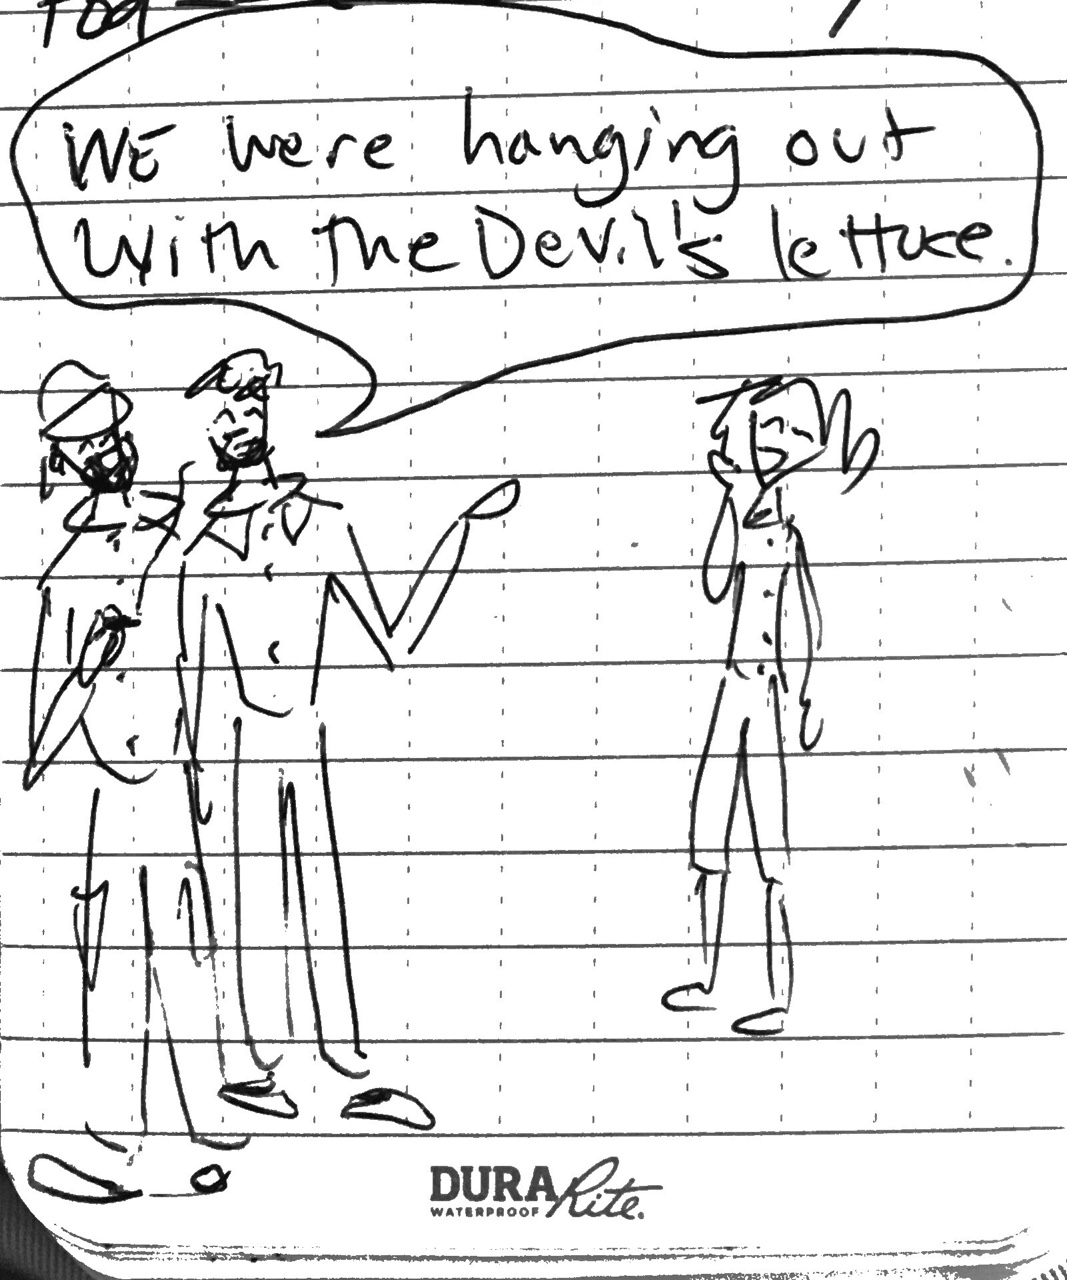 WE were hanging out
with the Devil's lettuce.
DURA Rite.
WATERPROOF